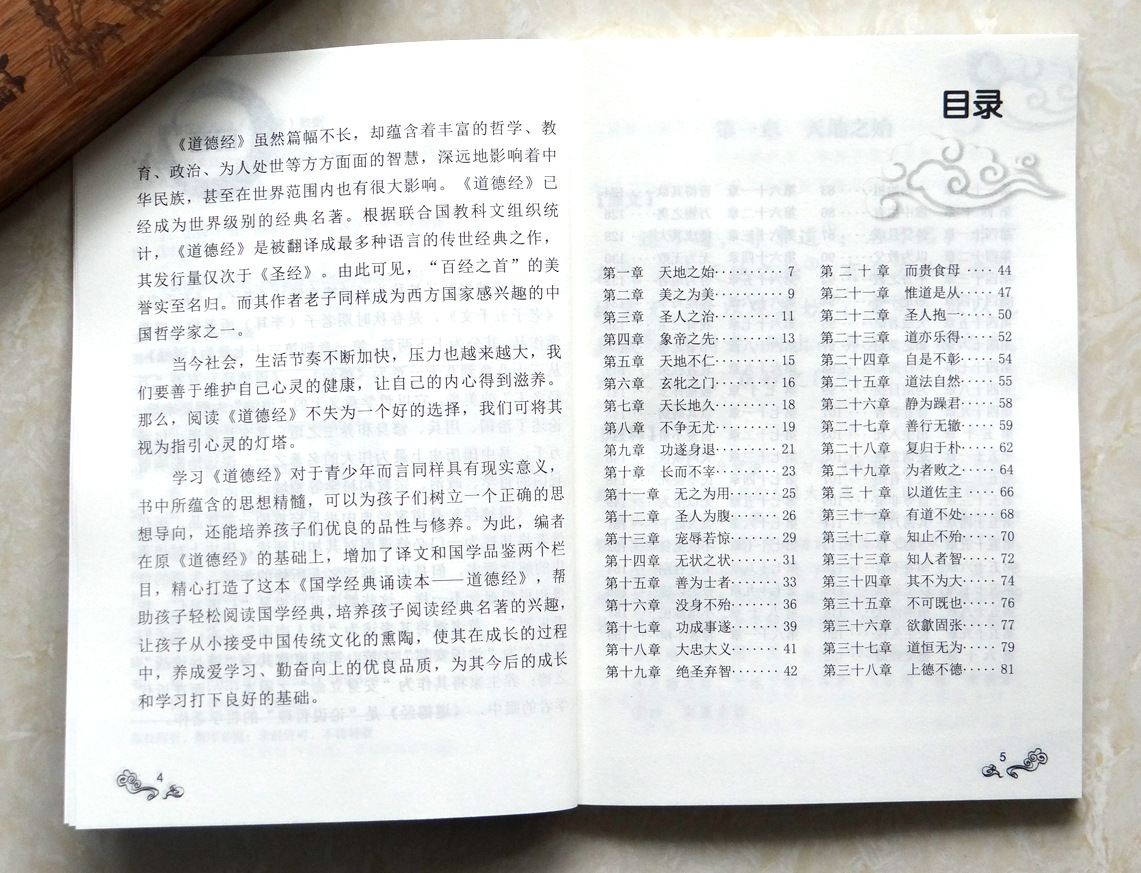 《道德经》虽然篇幅不长，却蕴含着丰富的哲学、教
育、政治、为人处世等方方面面的智慧，深远地影响着中
华民族，甚至在世界范围内也有很大影响。《道德经》已
经成为世界级别的经典名著。根据联合国教科文组织统
计，《道德经》是被翻译成最多种语言的传世经典之作，
其发行量仅次于《圣经》。由此可见，“百经之首”的美
誉实至名归。而其作者老子同样成为西方国家感兴趣的中
国哲学家之一。
当今社会，生活节奏不断加快，压力也越来越大，我
们要善于维护自己心灵的健康，让自己的内心得到滋养。
那么，阅读《道德经》不失为一个好的选择，我们可将其
视为指引心灵的灯塔。
学习《道德经》对于青少年而言同样具有现实意义，
书中所蕴含的思想精髓，可以为孩子们树立一个正确的思
想导向，还能培养孩子们优良的品性与修养。为此，编者
在原《道德经》的基础上，增加了译文和国学品鉴两个栏
目，精心打造了这本《国学经典诵读本——道德经》，帮
助孩子轻松阅读国学经典，培养孩子阅读经典名著的兴趣，
让孩子从小接受中国传统文化的熏陶，使其在成长的过程
中，养成爱学习、勤奋向上的优良品质，为其今后的成长
和学习打下良好的基础。
4
目录
第一章 天地之始·········· 7
第二章 美之为美·········· 9
第三章 圣人之治········· 11
第四章 象帝之先········· 13
第五章 天地不仁········· 15
第六章 玄牝之门········· 16
第七章 天长地久········· 18
第八章 不争无尤········· 19
第九章 功遂身退········· 21
第十章 长而不宰········· 23
第十一章 无之为用······· 25
第十二章 圣人为腹······· 26
第十三章 宠辱若惊······· 29
第十四章 无状之状······· 31
第十五章 善为士者······· 33
第十六章 没身不殆······· 36
第十七章 功成事遂······· 39
第十八章 大忠大义······· 41
第十九章 绝圣弃智······· 42
第二十章 而贵食母···· 44
第二十一章 惟道是从····· 47
第二十二章 圣人抱一····· 50
第二十三章 道亦乐得····· 52
第二十四章 自是不彰····· 54
第二十五章 道法自然····· 55
第二十六章 静为躁君····· 58
第二十七章 善行无辙····· 59
第二十八章 复归于朴····· 62
第二十九章 为者败之····· 64
第三十章 以道佐主···· 66
第三十一章 有道不处····· 68
第三十二章 知止不殆····· 70
第三十三章 知人者智····· 72
第三十四章 其不为大····· 74
第三十五章 不可既也····· 76
第三十六章 欲歙固张····· 77
第三十七章 道恒无为····· 79
第三十八章 上德不德····· 81
5